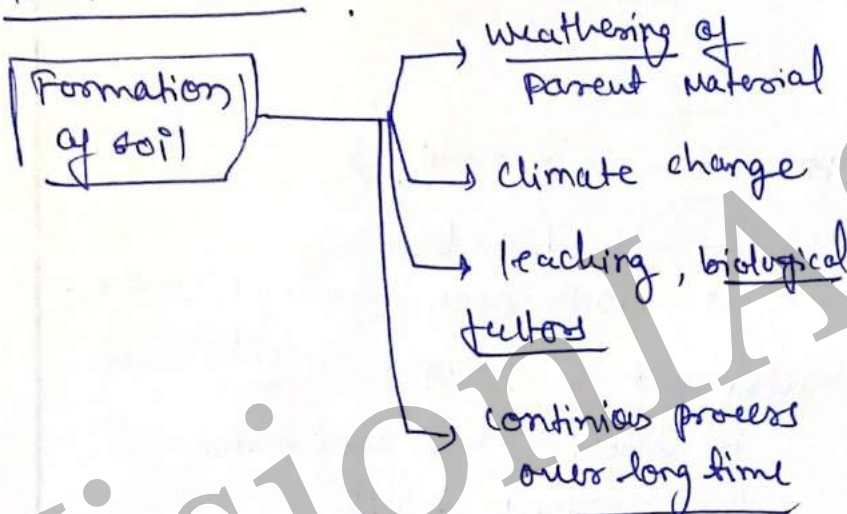 Formation
of soil
weathering of
parent Material
climate change
leaching, biological
fultors
continios process
over long time
VisionIAS